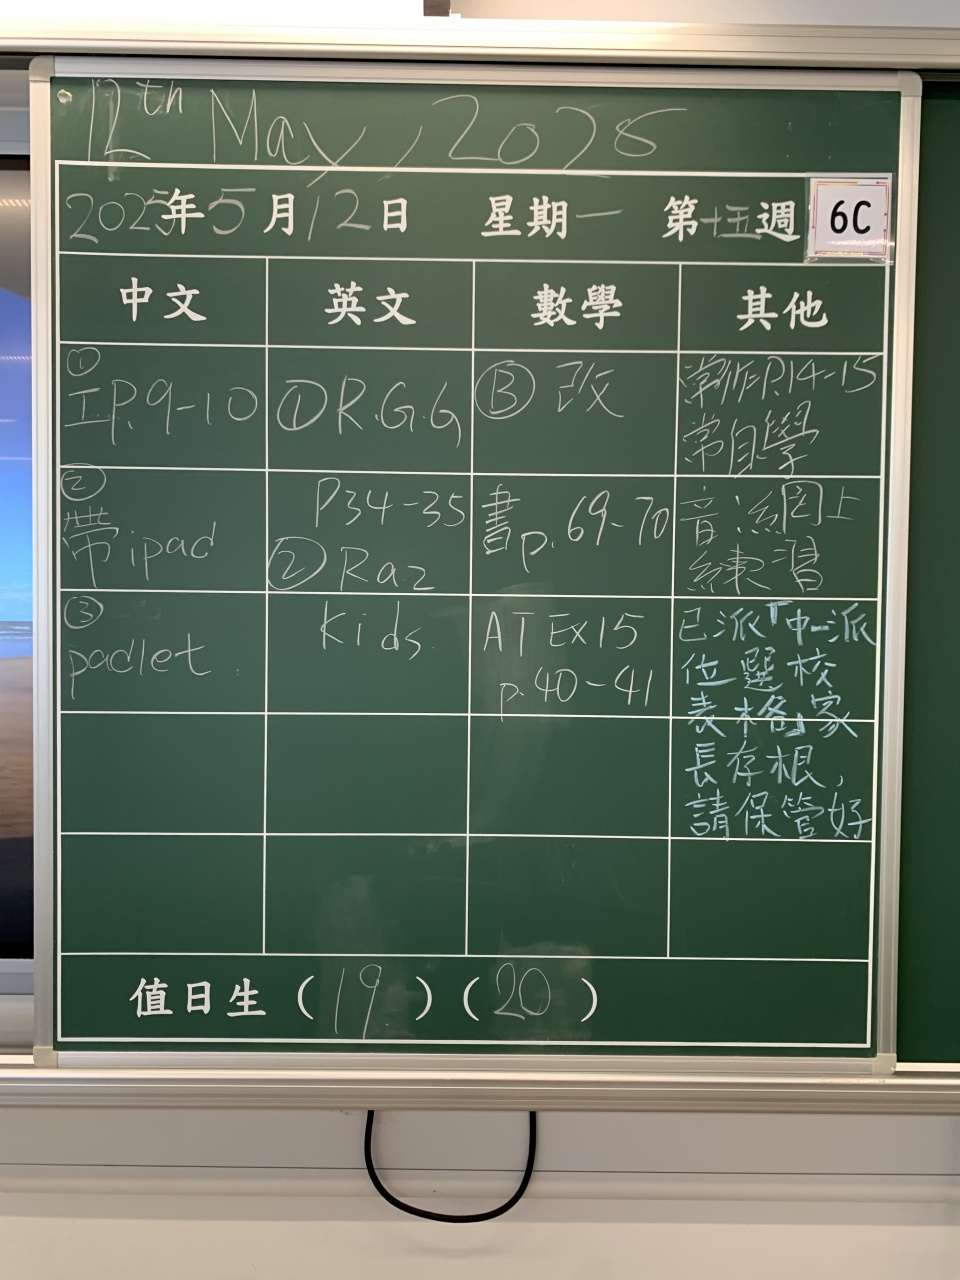 12th May, 2025
2025年5月12日 星期一 第十五週 6C
中文 英文 數學 其他
①
工P.9-10
②
帶ipad
③
padlet
① R.G.G
P34-35
② Raz
Kids
Ⓑ 改
書p.69-70
AT EX15
p.40-41
常作P.14-15
常自學
音:網上
練習
已派「中一派
位選校
表格」家
長存根,
請保管好
值日生(19)(20)